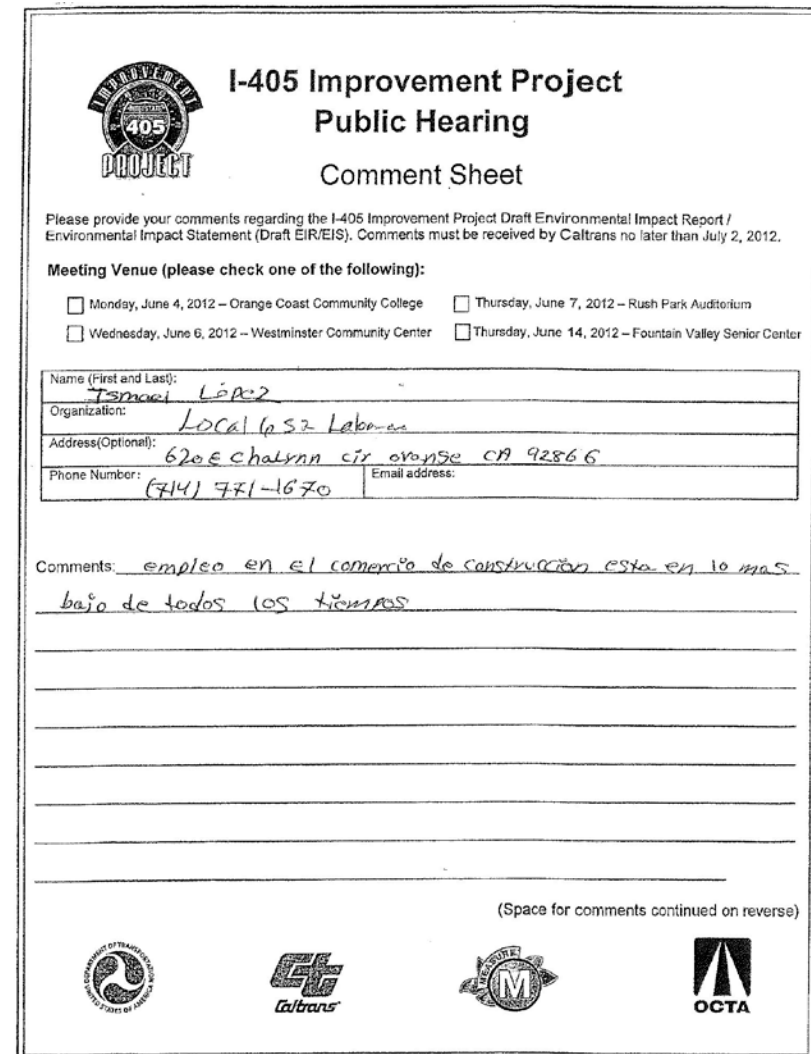 IMPROVEMENT
INTERSTATE
405
PROJECT
I-405 Improvement Project
Public Hearing
Comment Sheet
Please provide your comments regarding the I-405 Improvement Project Draft Environmental Impact Report /
Environmental Impact Statement (Draft EIR/EIS). Comments must be received by Caltrans no later than July 2, 2012.
Meeting Venue (please check one of the following):
Monday, June 4, 2012 – Orange Coast Community College Thursday, June 7, 2012 – Rush Park Auditorium
Wednesday, June 6, 2012 – Westminster Community Center Thursday, June 14, 2012 – Fountain Valley Senior Center
Name (First and Last):
Ismael López
Organization:
Local 652
Address(Optional):
620 E cir orange CA 92866
Phone Number: Email address:
(714) 771-1670
Comments: empleo en el comercio de construccion esta en lo mas
bajo de todos los tiempos
(Space for comments continued on reverse)
DEPARTMENT OF TRANSPORTATION
UNITED STATES OF AMERICA
Caltrans
MEASURE
M
OCTA